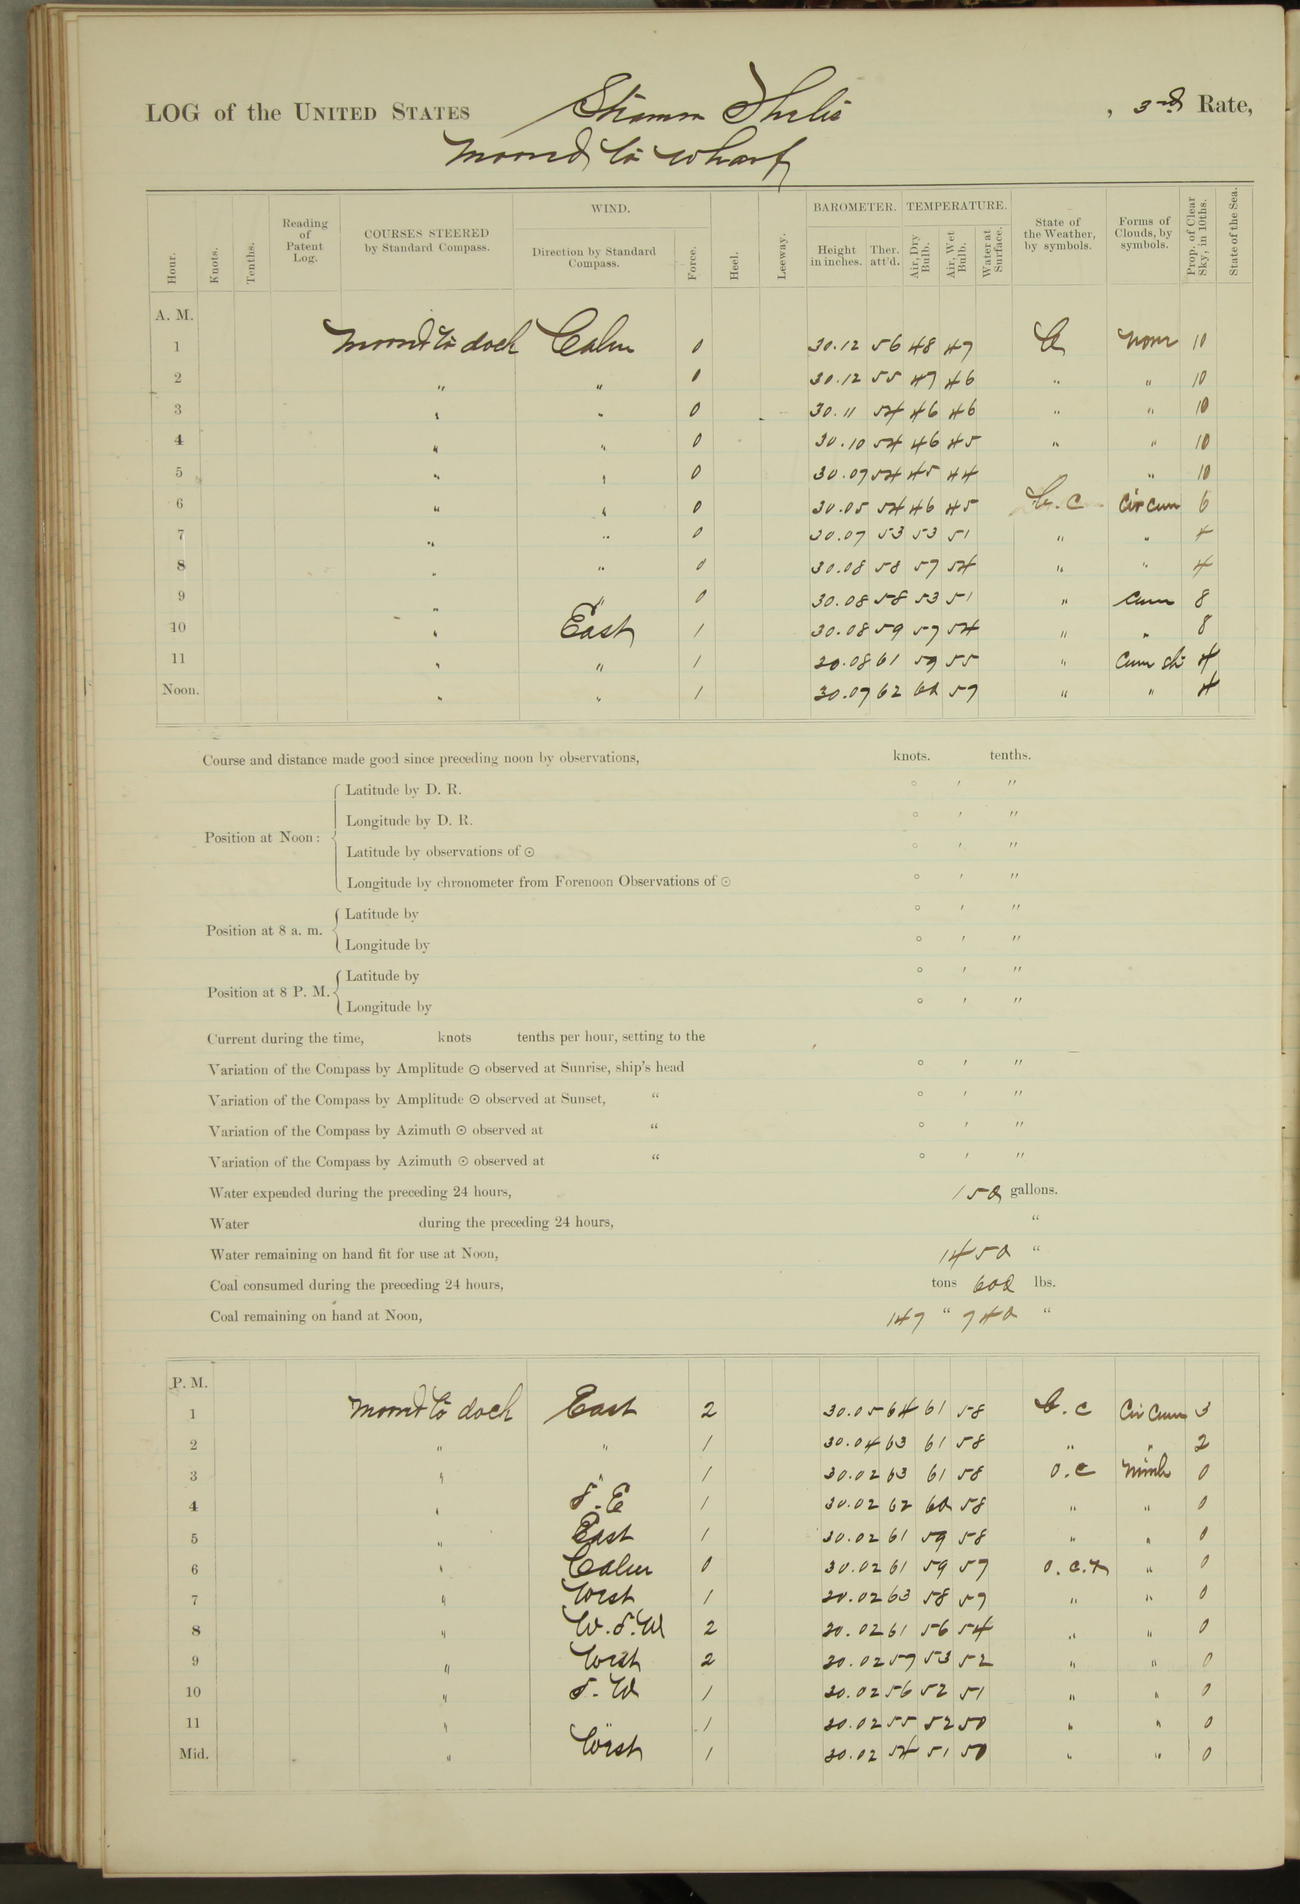 LOG of the UNITED STATES Steamer Thetis, 3rd Rate,
Moored to Wharf
Hour. Knots. Tenths. Reading of Patent Log. COURSES STEERED by Standard Compass. WIND. Direction by Standard Compass. Force. Heel. Leeway. BAROMETER. Height in inches. Ther. att'd. TEMPERATURE. Air, Dry Bulb. Air, Wet Bulb. Water at Surface. State of the Weather, by symbols. Forms of Clouds, by symbols. Prop. of Clear Sky, in 10ths. State of the Sea.
A. M.
1 Moored to dock Calm 0 30.12 56 48 47 b None 10
2 " " 0 30.12 55 47 46 " " 10
3 " " 0 30.11 54 46 46 " " 10
4 " " 0 30.10 54 46 45 " " 10
5 " " 0 30.07 54 45 44 " 10
6 " " 0 30.05 54 46 45 b.c Cir Cum 6
7 " " 0 30.07 53 53 51 " " 4
8 " " 0 30.08 58 57 54 " " 4
9 " " 0 30.08 58 53 51 " Cum 8
10 " East 1 30.08 59 57 54 " " 8
11 " " 1 30.08 61 59 55 " Cum St 4
Noon. " " 1 30.07 62 60 57 " " 4
Course and distance made good since preceding noon by observations, knots. tenths.
Position at Noon:
Latitude by D. R. ° ′ ″
Longitude by D. R. ° ′ ″
Latitude by observations of ☉ ° ′ ″
Longitude by chronometer from Forenoon Observations of ☉ ° ′ ″
Position at 8 a. m.
Latitude by ° ′ ″
Longitude by ° ′ ″
Position at 8 P. M.
Latitude by ° ′ ″
Longitude by ° ′ ″
Current during the time, knots tenths per hour, setting to the
Variation of the Compass by Amplitude ☉ observed at Sunrise, ship's head ° ′ ″
Variation of the Compass by Amplitude ☉ observed at Sunset, “ ° ′ ″
Variation of the Compass by Azimuth ☉ observed at “ ° ′ ″
Variation of the Compass by Azimuth ☉ observed at “ ° ′ ″
Water expended during the preceding 24 hours, 150 gallons.
Water during the preceding 24 hours, “
Water remaining on hand fit for use at Noon, 1450 “
Coal consumed during the preceding 24 hours, tons 600 lbs.
Coal remaining on hand at Noon, 147 “ 740 “
P. M.
1 Moored to dock East 2 30.05 64 61 58 b.c Cir Cum 3
2 " " 1 30.04 63 61 58 " " 2
3 " " 1 30.02 63 61 58 o.c Nimb 0
4 " S.E 1 30.02 62 60 58 " " 0
5 " East 1 30.02 61 59 58 " " 0
6 " Calm 0 30.02 61 59 57 o.c.r " 0
7 " West 1 30.02 63 58 57 " " 0
8 " W.S.W 2 30.02 61 56 54 " " 0
9 " West 2 30.02 57 53 52 " " 0
10 " S.W 1 30.02 56 52 51 " " 0
11 " " 1 30.02 55 52 50 " " 0
Mid. " West 1 30.02 54 51 50 " " 0